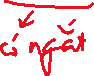 có ngắt